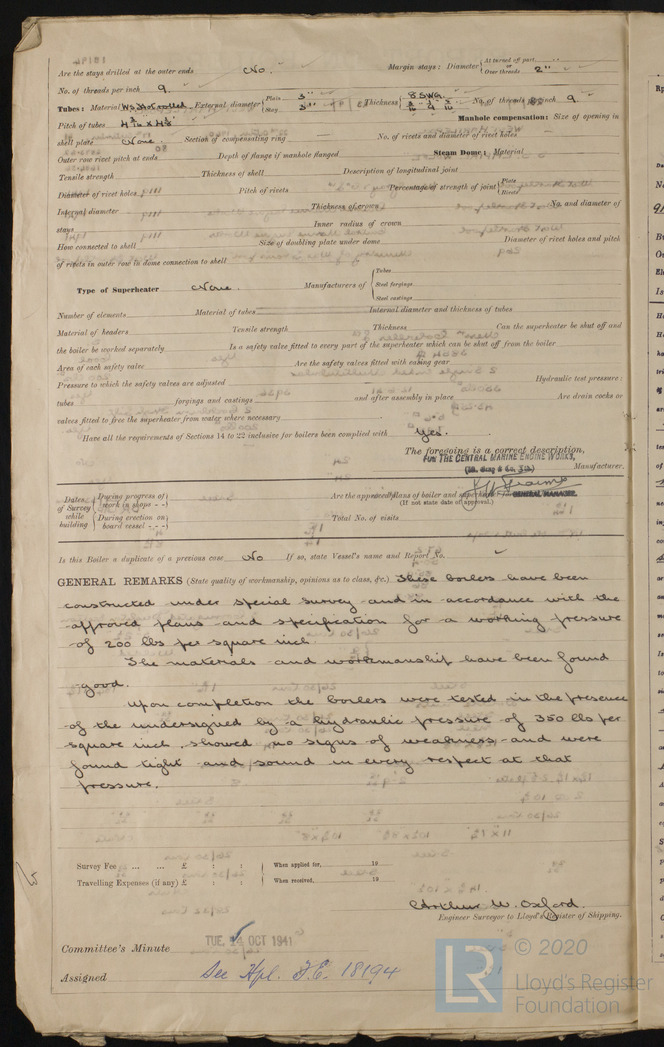 Are the stays drilled at the outer ends No. Margin stays: Diameter { At turned off part, or Over threads 2"
No. of threads per inch 9.
Tubes: Material W.S. Hot rolled External diameter { Plain 3" Stay 3" Thickness { 8 SWG. No. of threads per inch 9.
Pitch of tubes Manhole compensation: Size of opening in
shell plate None Section of compensating ring No. of rivets and diameter of rivet holes
Outer row rivet pitch at ends Depth of flange if manhole flanged Steam Dome: Material
Tensile strength Thickness of shell Description of longitudinal joint
Diameter of rivet holes Pitch of rivets Percentage of strength of joint { Plate Rivets
Internal diameter Thickness of crown No. and diameter of
stays Inner radius of crown
How connected to shell Size of doubling plate under dome Diameter of rivet holes and pitch
of rivets in outer row in dome connection to shell
Type of Superheater None. Manufacturers of { Tubes Steel forgings Steel castings
Number of elements Material of tubes Internal diameter and thickness of tubes
Material of headers Tensile strength Thickness Can the superheater be shut off and
the boiler be worked separately Is a safety valve fitted to every part of the superheater which can be shut off from the boiler
Area of each safety valve Are the safety valves fitted with easing gear
Pressure to which the safety valves are adjusted Hydraulic test pressure:
tubes forgings and castings and after assembly in place Are drain cocks or
valves fitted to free the superheater from water where necessary
Have all the requirements of Sections 14 to 22 inclusive for boilers been complied with Yes.
The foregoing is a correct description,
FOR THE CENTRAL MARINE ENGINE WORKS,
(W. Gray & Co. Ltd.) Manufacturer.
GENERAL MANAGER.
Dates of Survey while building { During progress of work in shops - - During erection on board vessel - - - Are the approved plans of boiler and superheater
(If not state date of approval.)
Total No. of visits
Is this Boiler a duplicate of a previous case No If so, state Vessel's name and Report No.
GENERAL REMARKS (State quality of workmanship, opinions as to class, &c.) These boilers have been
constructed under special survey and in accordance with the
approved plans and specification for a working pressure
of 200 lbs per square inch.
The materials and workmanship have been found
good.
Upon completion the boilers were tested in the presence
of the undersigned by a hydraulic pressure of 350 lbs per
square inch, showed no signs of weakness and were
found tight and sound in every respect at that
pressure.
Survey Fee ... ... £ : : When applied for, 19
Travelling Expenses (if any) £ : : When received, 19
Arthur W. Oxford.
Engineer Surveyor to Lloyd's Register of Shipping.
Committee's Minute TUE. 14 OCT 1941
Assigned See Hpl. F.E. 18194
LR © 2020
Lloyd's Register
Foundation